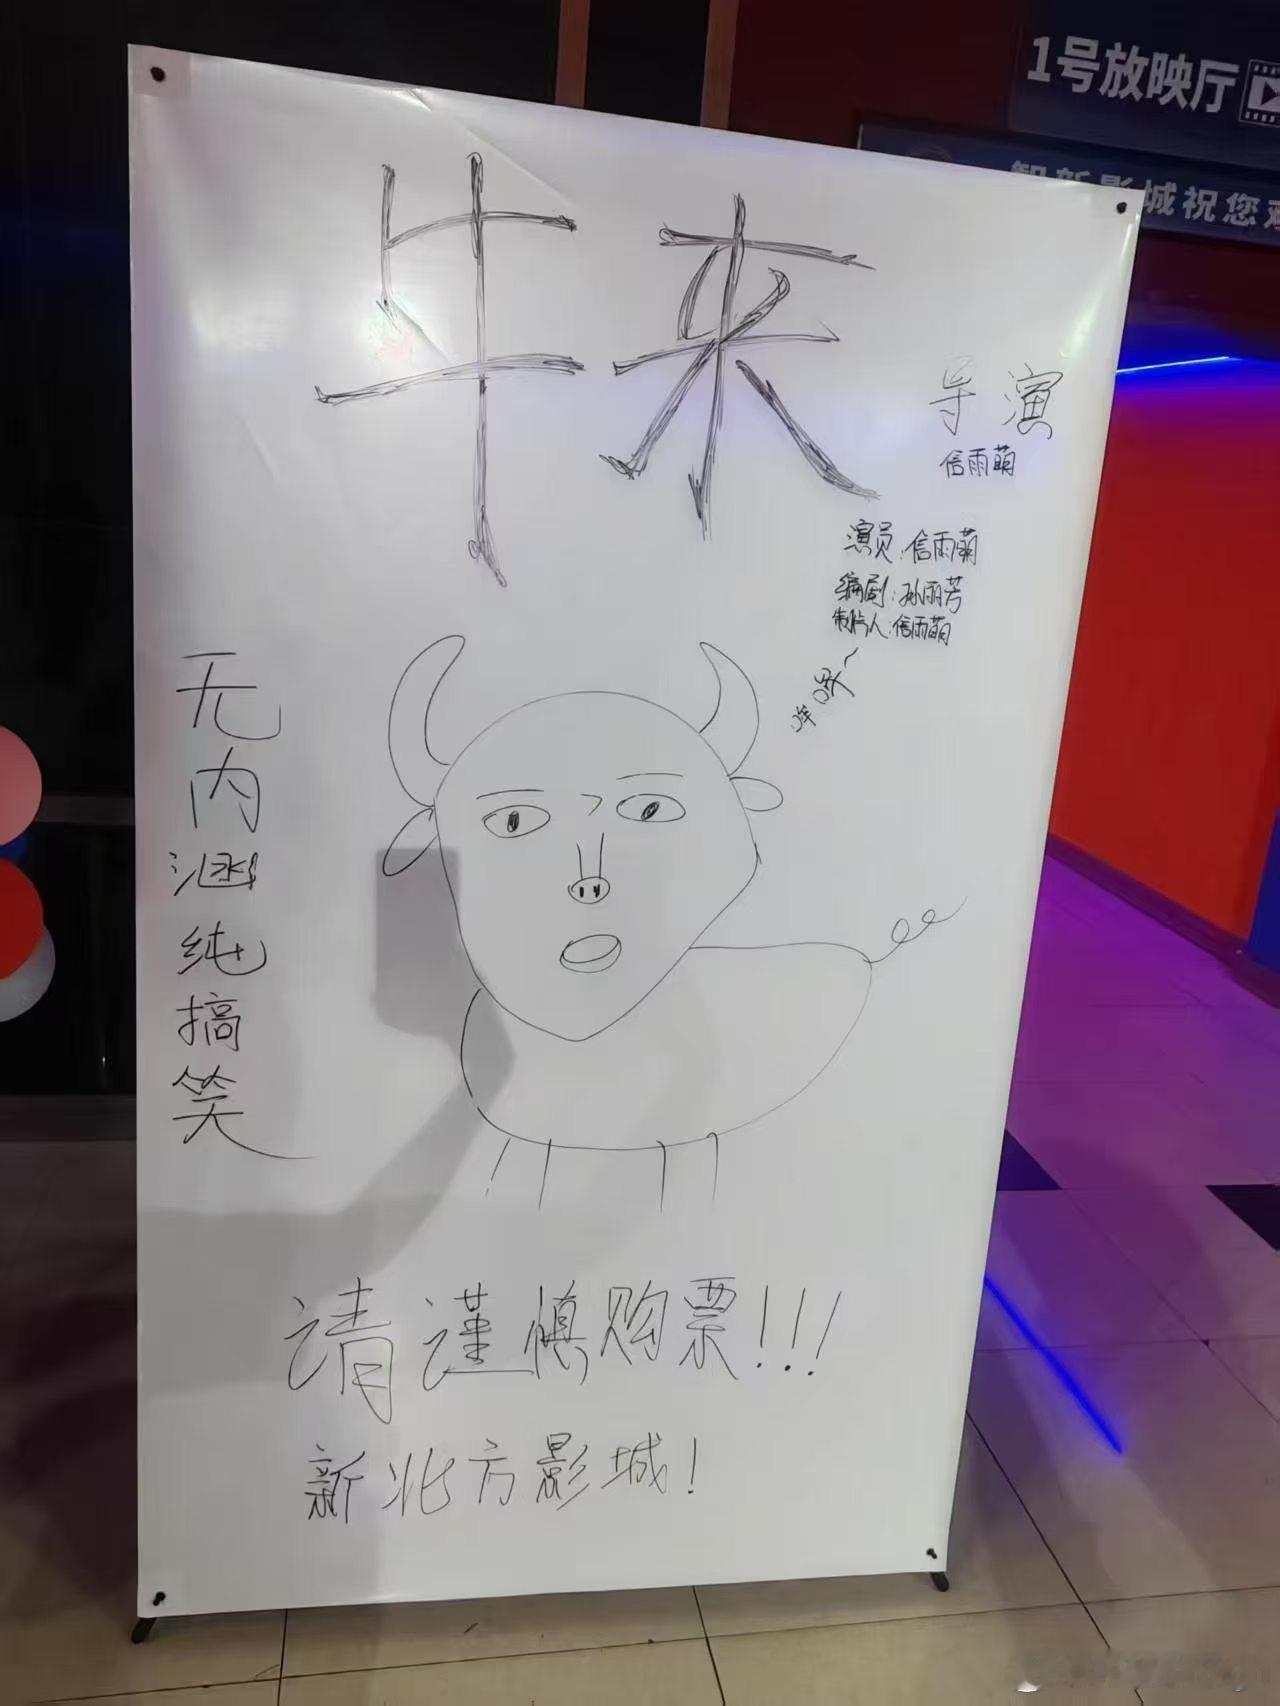 1号放映厅
智新影城祝您观
牛来
导演
信雨萌
演员:信雨萌
编剧:孙雨芳
制片人:信雨萌
哞哞~
无内涵纯搞笑
请谨慎购票!!!
新北方影城!